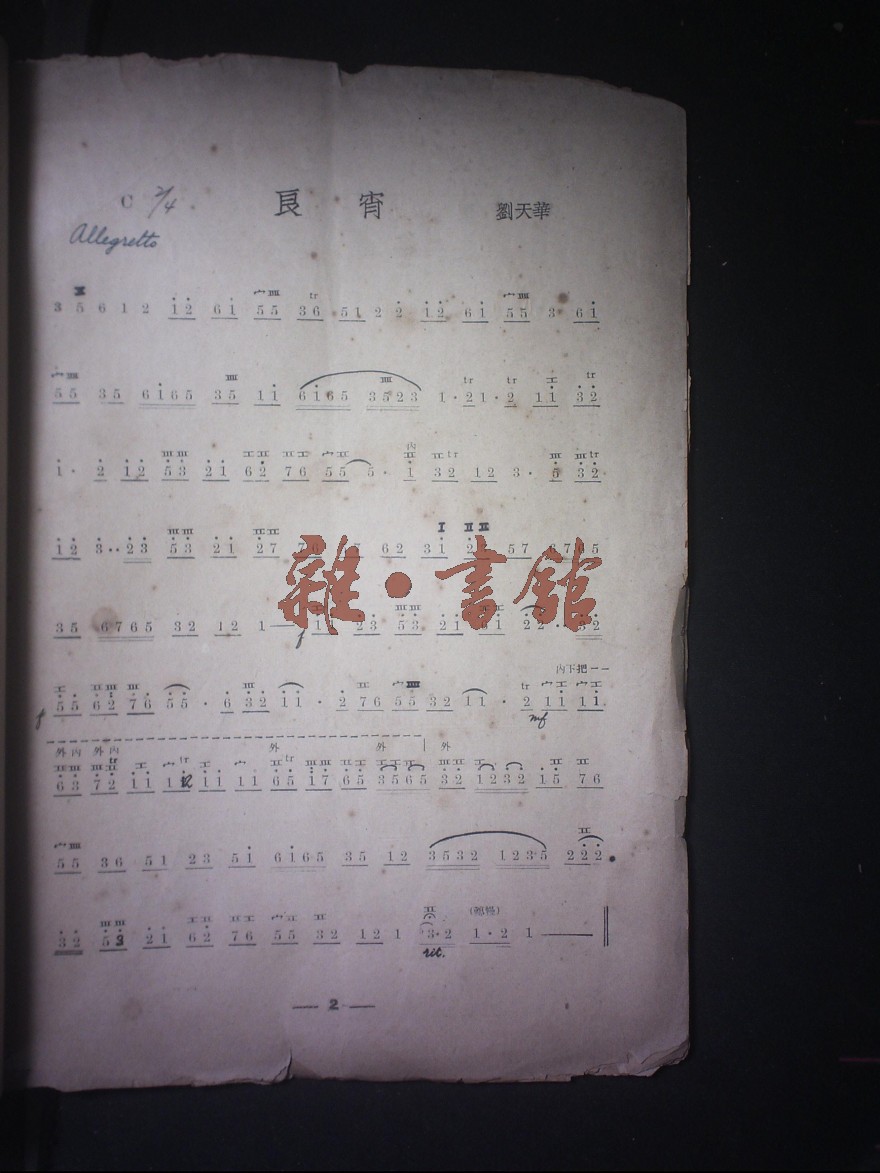 C 2/4 良宵 劉天華
Allegretto
3 5 6 1 2 12 61 55 36 51 2 2 12 61 55 3 61
tr
55 35 6165 35 11 6165 3523 1· 21· 2 11 32
tr tr tr
1· 2 12 53 21 62 76 55 5· 1 32 12 3· 5 32
内 tr tr
12 3·· 23 53 21 27 76 62 31 57 6765
I II II
35 6765 32 12 1 — 1 23 53 21 61 22·· 32
f
雜·書館
内下把
55 62 76 55· 6 32 11· 2 76 55 32 11· 2 11 11
f tr mf
外 内 外 内 外 外 外
63 72 11 11 11 65 17 65 3565 32 1232 15 76
tr tr tr
55 36 51 23 51 6165 35 12 3532 1235 222
32 53 21 62 76 55 32 12 1 3·2 1·2 1 —
rit.
— 2 —